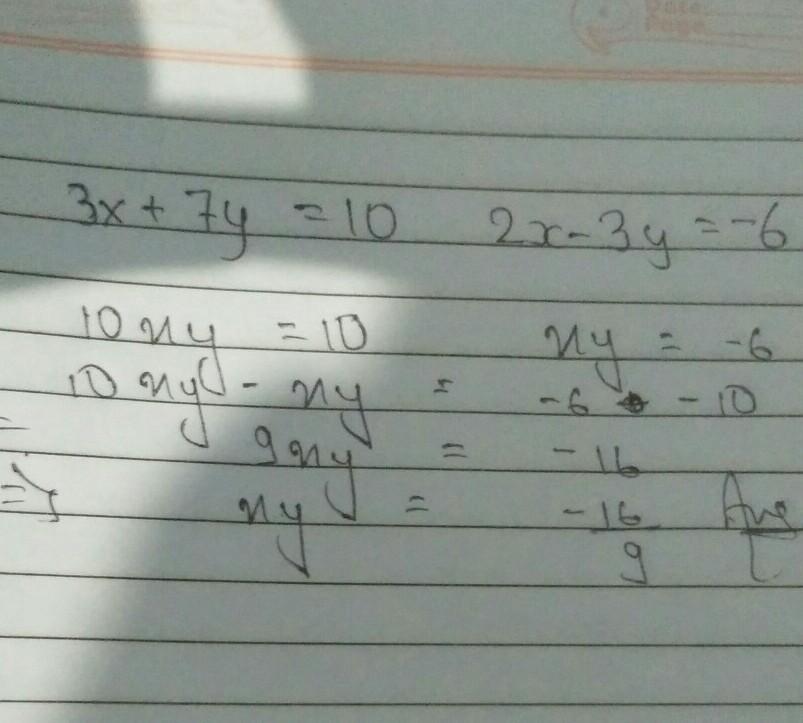 Date
Page
3x + 7y = 10 2x - 3y = -6
10 xy = 10 xy = -6
10 xy - xy = -6 - 10
= 9xy = -16
=> xy = -16/9 Ans